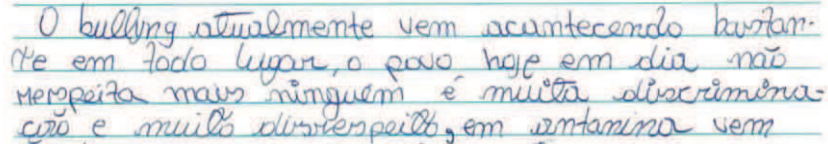 O bullyng atualmente vem acuntecendo bastan-
te em todo lugar, o povo hoje em dia não
respeita mais ninguém é muita discrimina-
ção e muito disrrespeito, em vem